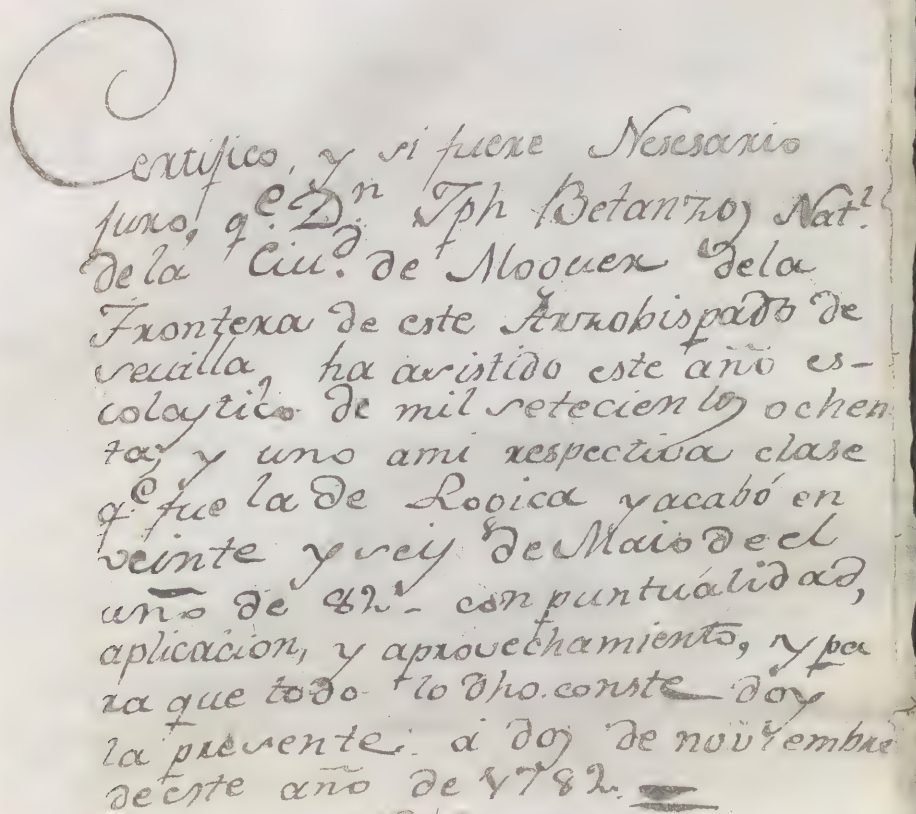 Certifico, y si fuere Nesesario
juro, q.e D.n Jph Betanzos Nat.l
de la Ciu.d de Moguer dela
Frontera de este Arzobispado de
sevilla, ha asistido este año es-
colastico de mil setecientos ochen
ta, y uno ami respectiva clase
q.e fue la de Logica y acabó en
veinte y seis de Maio de el
año de 82 con puntualidad,
aplicacion, y aprovechamiento, y pa
ra que todo lo dho. conste doy
la presente. a dos de noviembre
de este año de 1782.